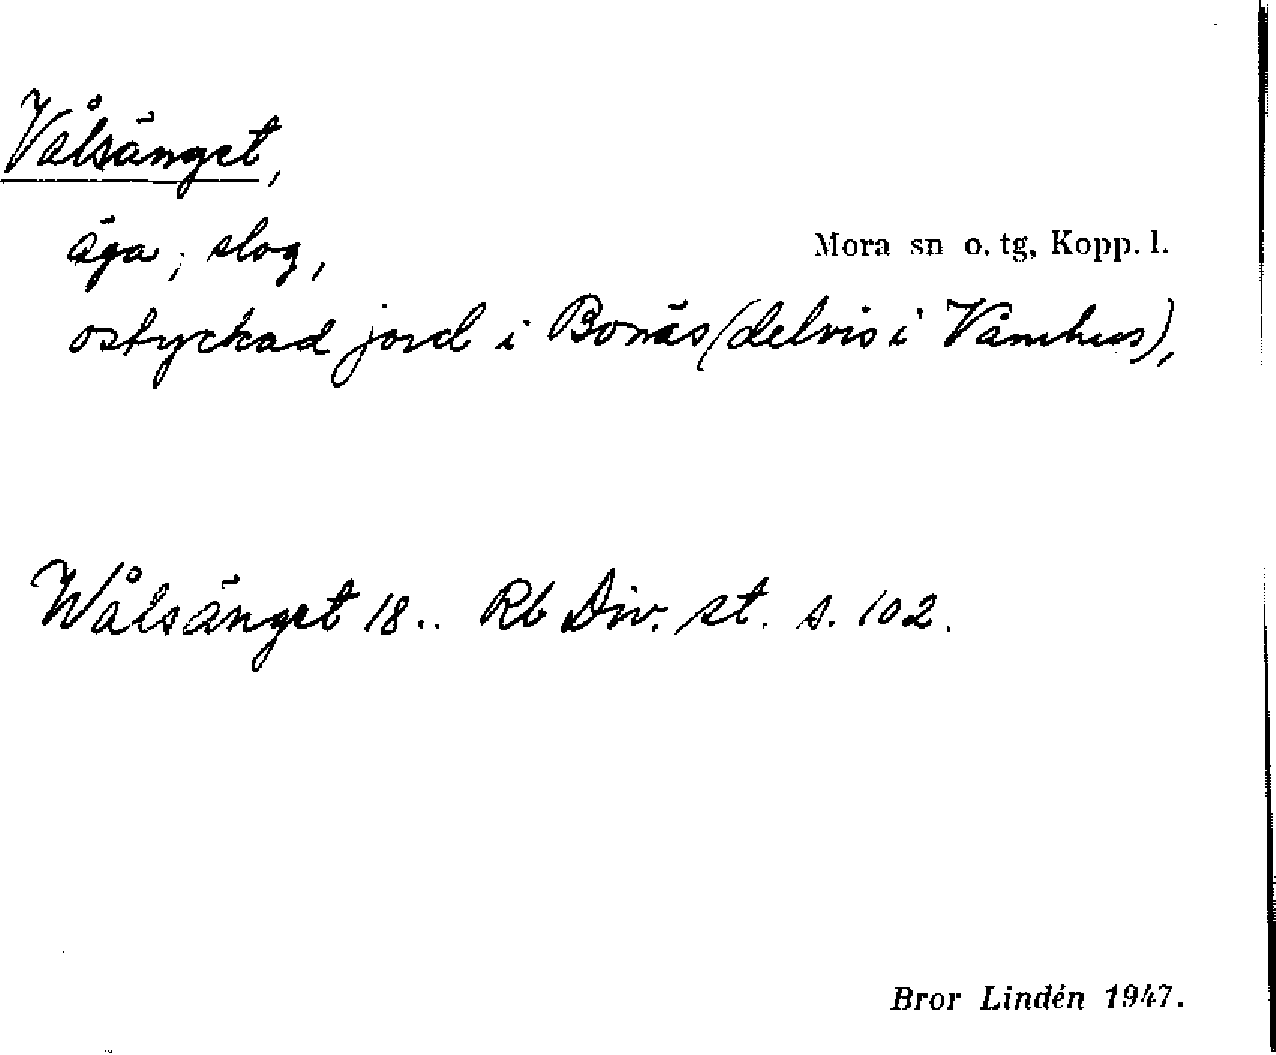 Vålsänget,
äga; slog,
Mora sn o. tg, Kopp. l.
ostyckad jord i Bonäs (delvis i Våmhus),
Wålsänget 18.. Rb Div. st. s. 102.
Bror Lindén 1947.